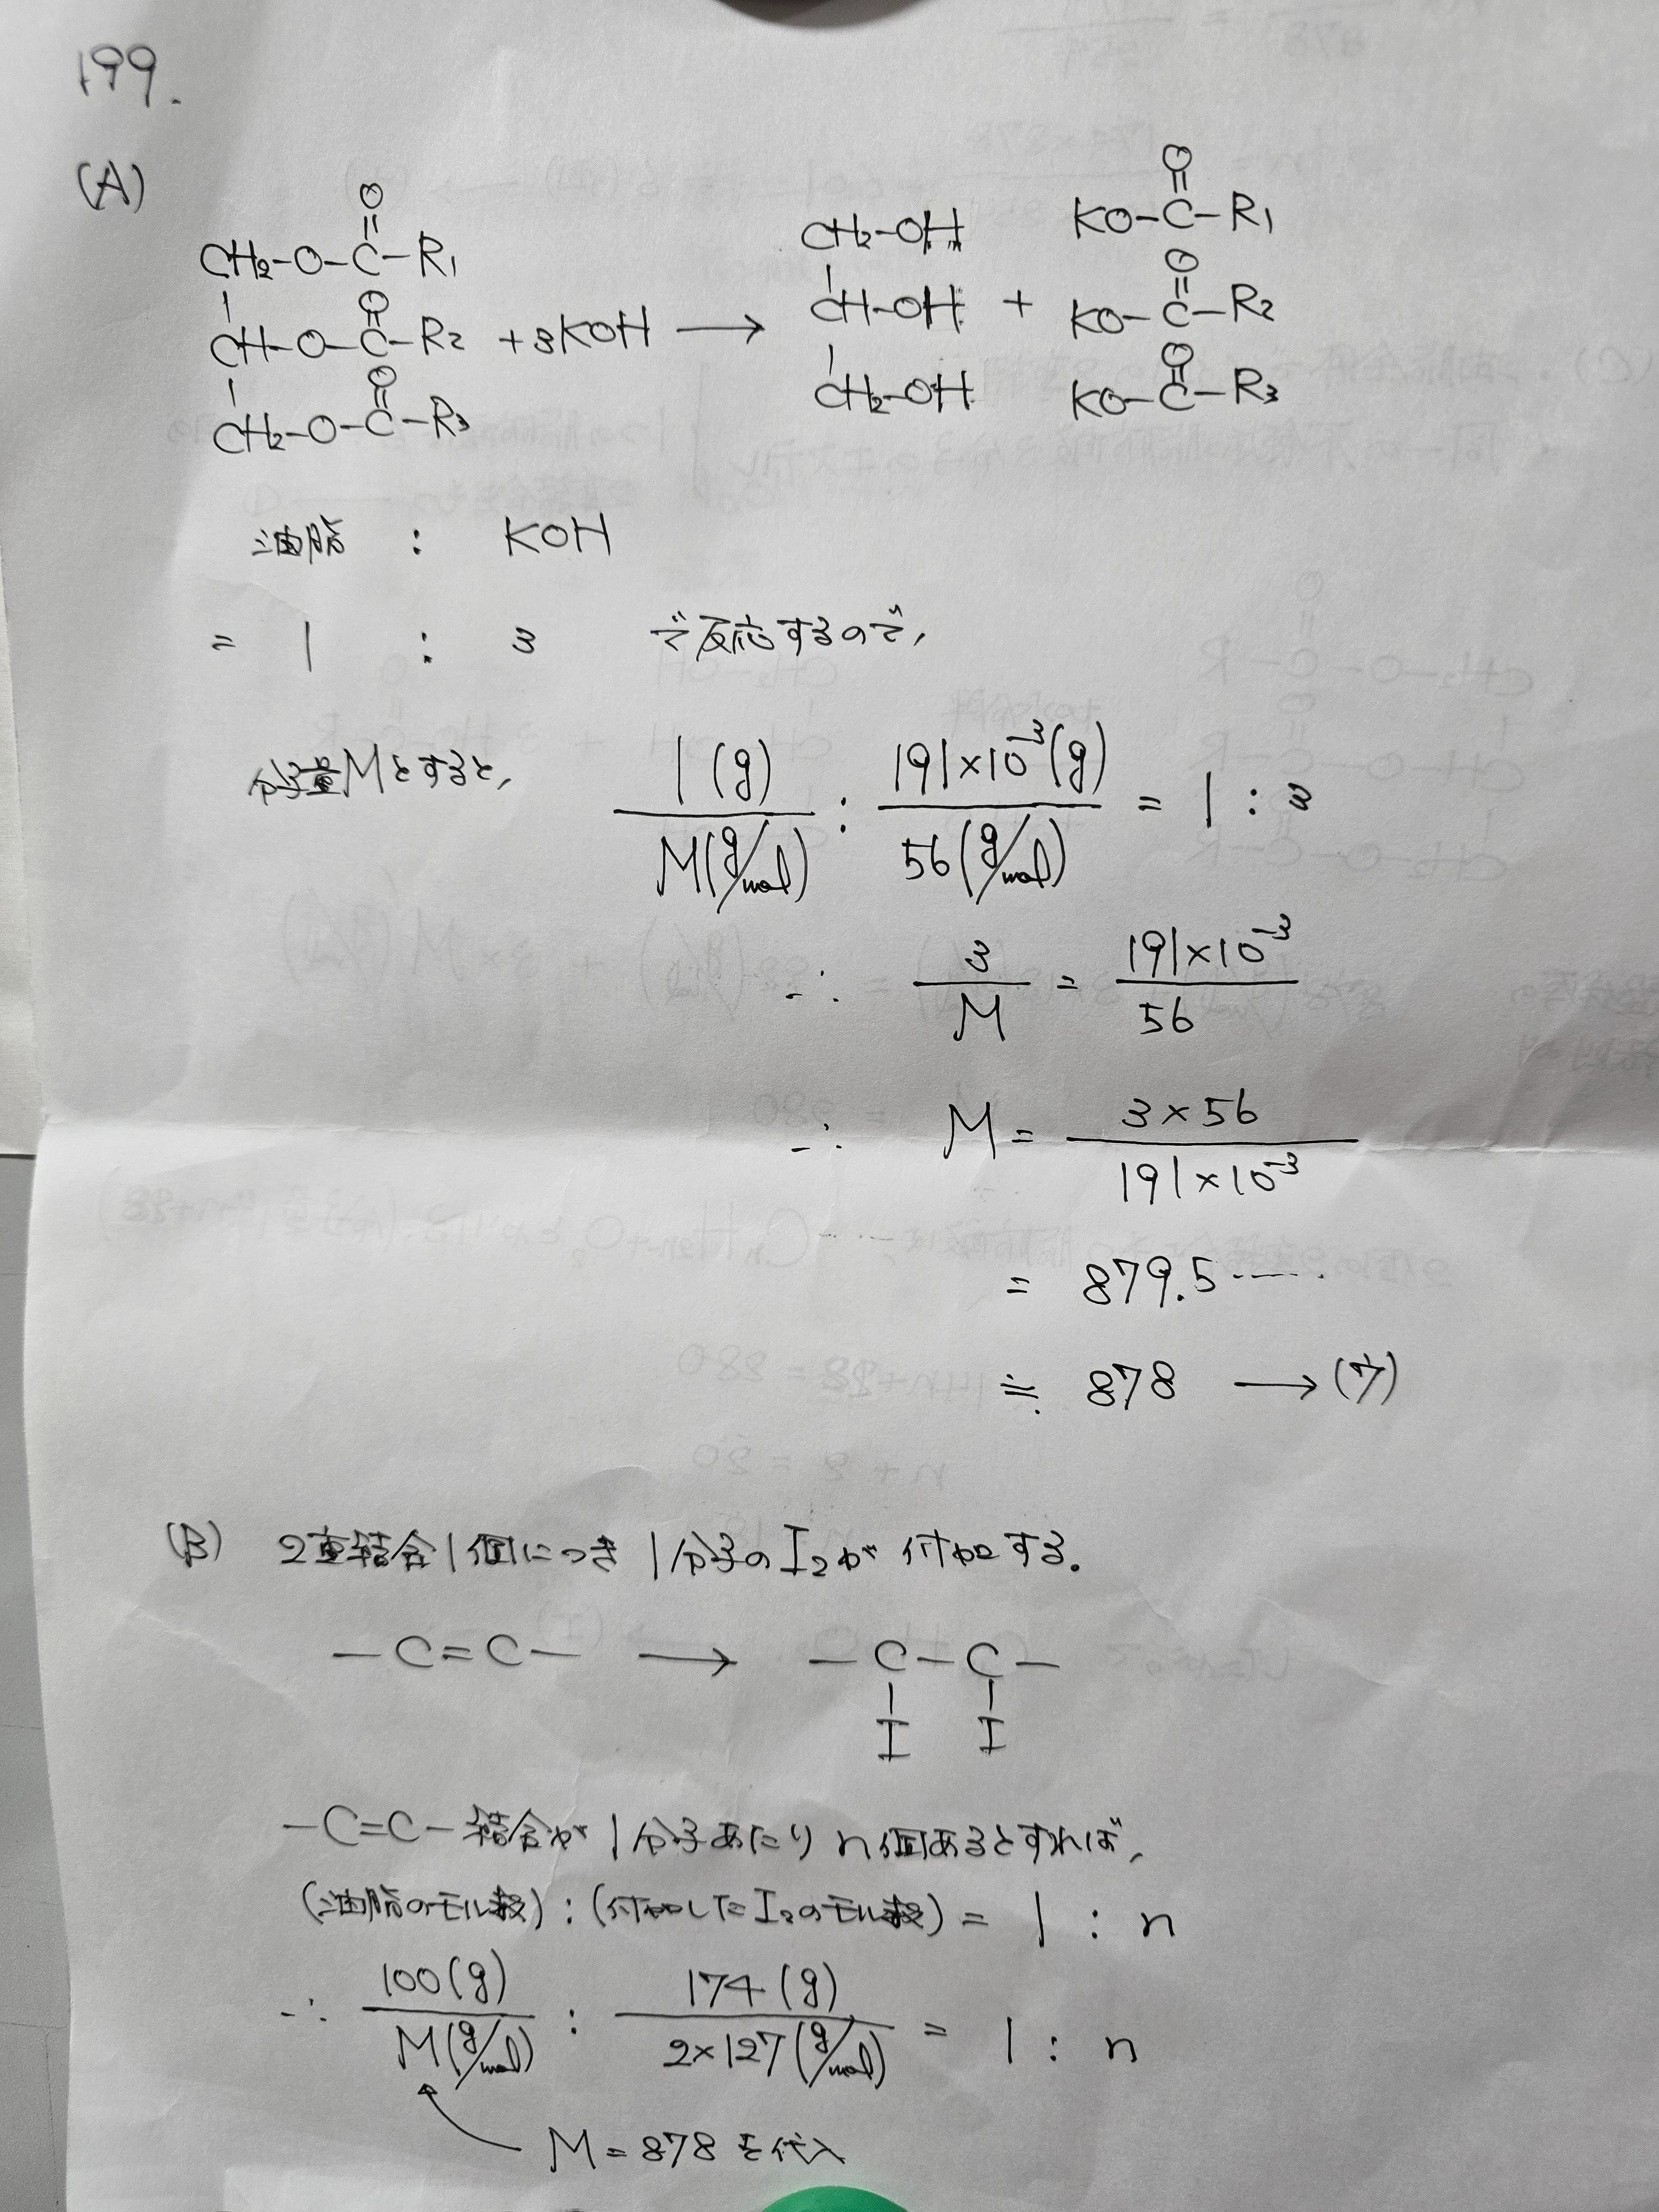 199.
(A)
CH₂-O-C(=O)-R₁
CH-O-C(=O)-R₂ + 3KOH → 
CH₂-O-C(=O)-R₃
CH₂-OH
CH-OH +
CH₂-OH
KO-C(=O)-R₁
KO-C(=O)-R₂
KO-C(=O)-R₃
油脂 : KOH
= 1 : 3 で反応するので,
分子量Mとすると, 1(g)/M(g/mol) : 191×10⁻³(g)/56(g/mol) = 1 : 3
∴ 3/M = 191×10⁻³/56
∴ M = 3×56/191×10⁻³
= 879.5……
≒ 878 → (ケ)
(B) 2重結合1個につき1分子のI₂が付加する.
-C=C- → -C(I)-C(I)-
-C=C-結合が1分子あたりn個あるとすれば,
(油脂のモル数):(付加したI₂のモル数) = 1 : n
∴ 100(g)/M(g/mol) : 174(g)/2×127(g/mol) = 1 : n
M=878を代入